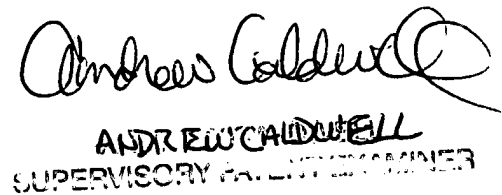 Andrew Caldwell
ANDREW CALDWELL
SUPERVISORY PATENT EXAMINER